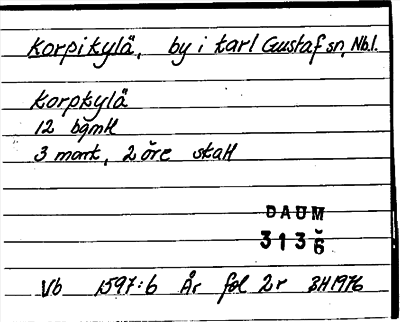 Korpikylä, by i Karl Gustaf sn, Nb.l.
Korpkylä
12 bgmH
3 mark, 2 öre skatt
DAUM
3136
Vb 1597:6 År fol 2r BH1976